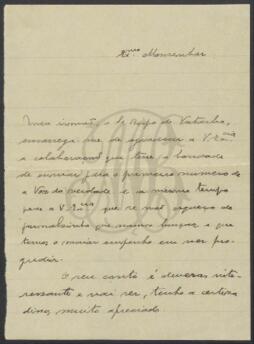 Rmo Monsenhor
Meu irmão, o
encarrega-me de agradecer a V. Rcia
a collaboração que teve a bondade
de enviar para o primeiro numero de
a Voz da Verdade e ao mesmo tempo
pede a V. Rcia que se não esqueça do
jornalsinho que vamos lançar e que
temos o maior empenho em ver pro-
gredir.
O seu conto é deveras inte-
ressante e vai ser, tenho a certeza
disso, muito apreciado.